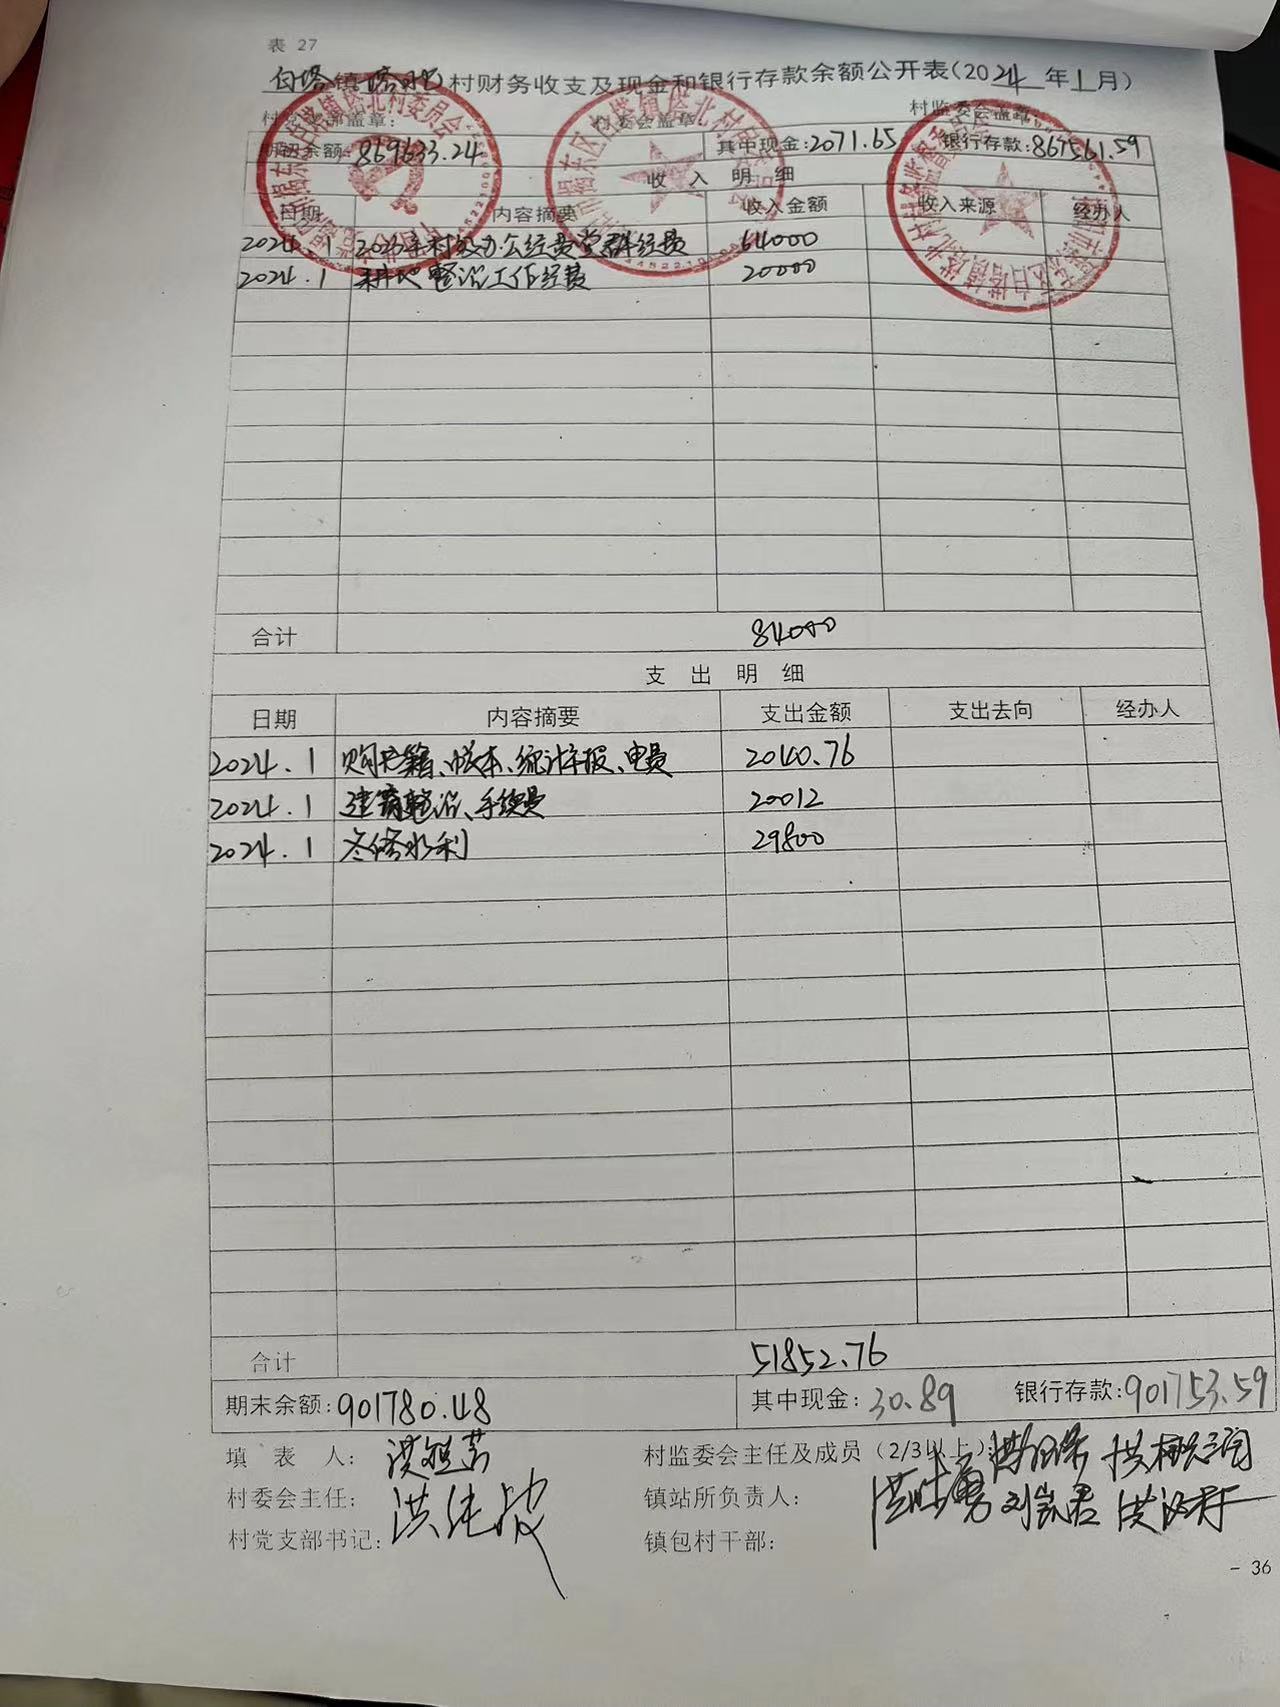 表 27
白塔镇塔北村财务收支及现金和银行存款余额公开表(2024年1月)
村党支部盖章: 村委会盖章: 村监委会盖章:
期初余额: 869633.24 其中现金:2071.65 银行存款:867561.59
收 入 明 细
日期 内容摘要 收入金额 收入来源 经办人
2024.1 2023年村级办公经费党群经费 64000
2024.1 耕地整治工作经费 20000
合计 84000
支 出 明 细
日期 内容摘要 支出金额 支出去向 经办人
2024.1 账本、统计年报、电费 2040.76
2024.1 整治、手续费 20012
2024.1 冬修水利 29800
合计 51852.76
期末余额:901780.48 其中现金:30.89 银行存款:901753.59
填 表 人: 洪
村监委会主任及成员(2/3以上):
村委会主任: 洪
镇站所负责人: 刘凯君
村党支部书记:
镇包村干部:
- 36